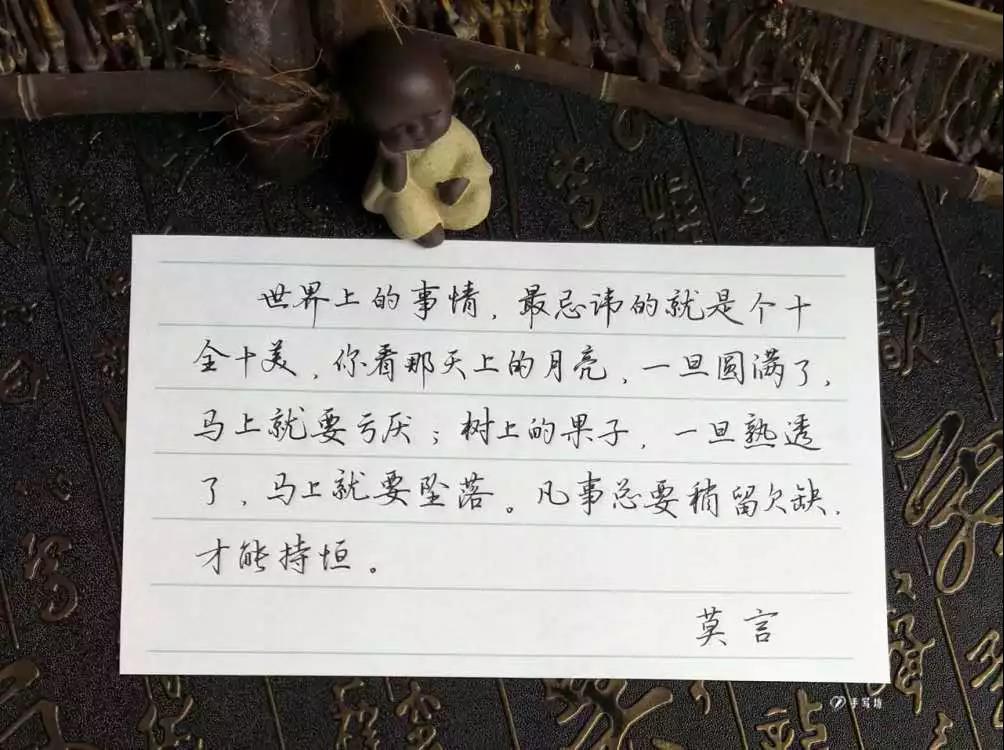 世界上的事情，最忌讳的就是个十
全十美，你看那天上的月亮，一旦圆满了，
马上就要亏厌；树上的果子，一旦熟透
了，马上就要坠落。凡事总要稍留欠缺，
才能持恒。
莫言
手写坊